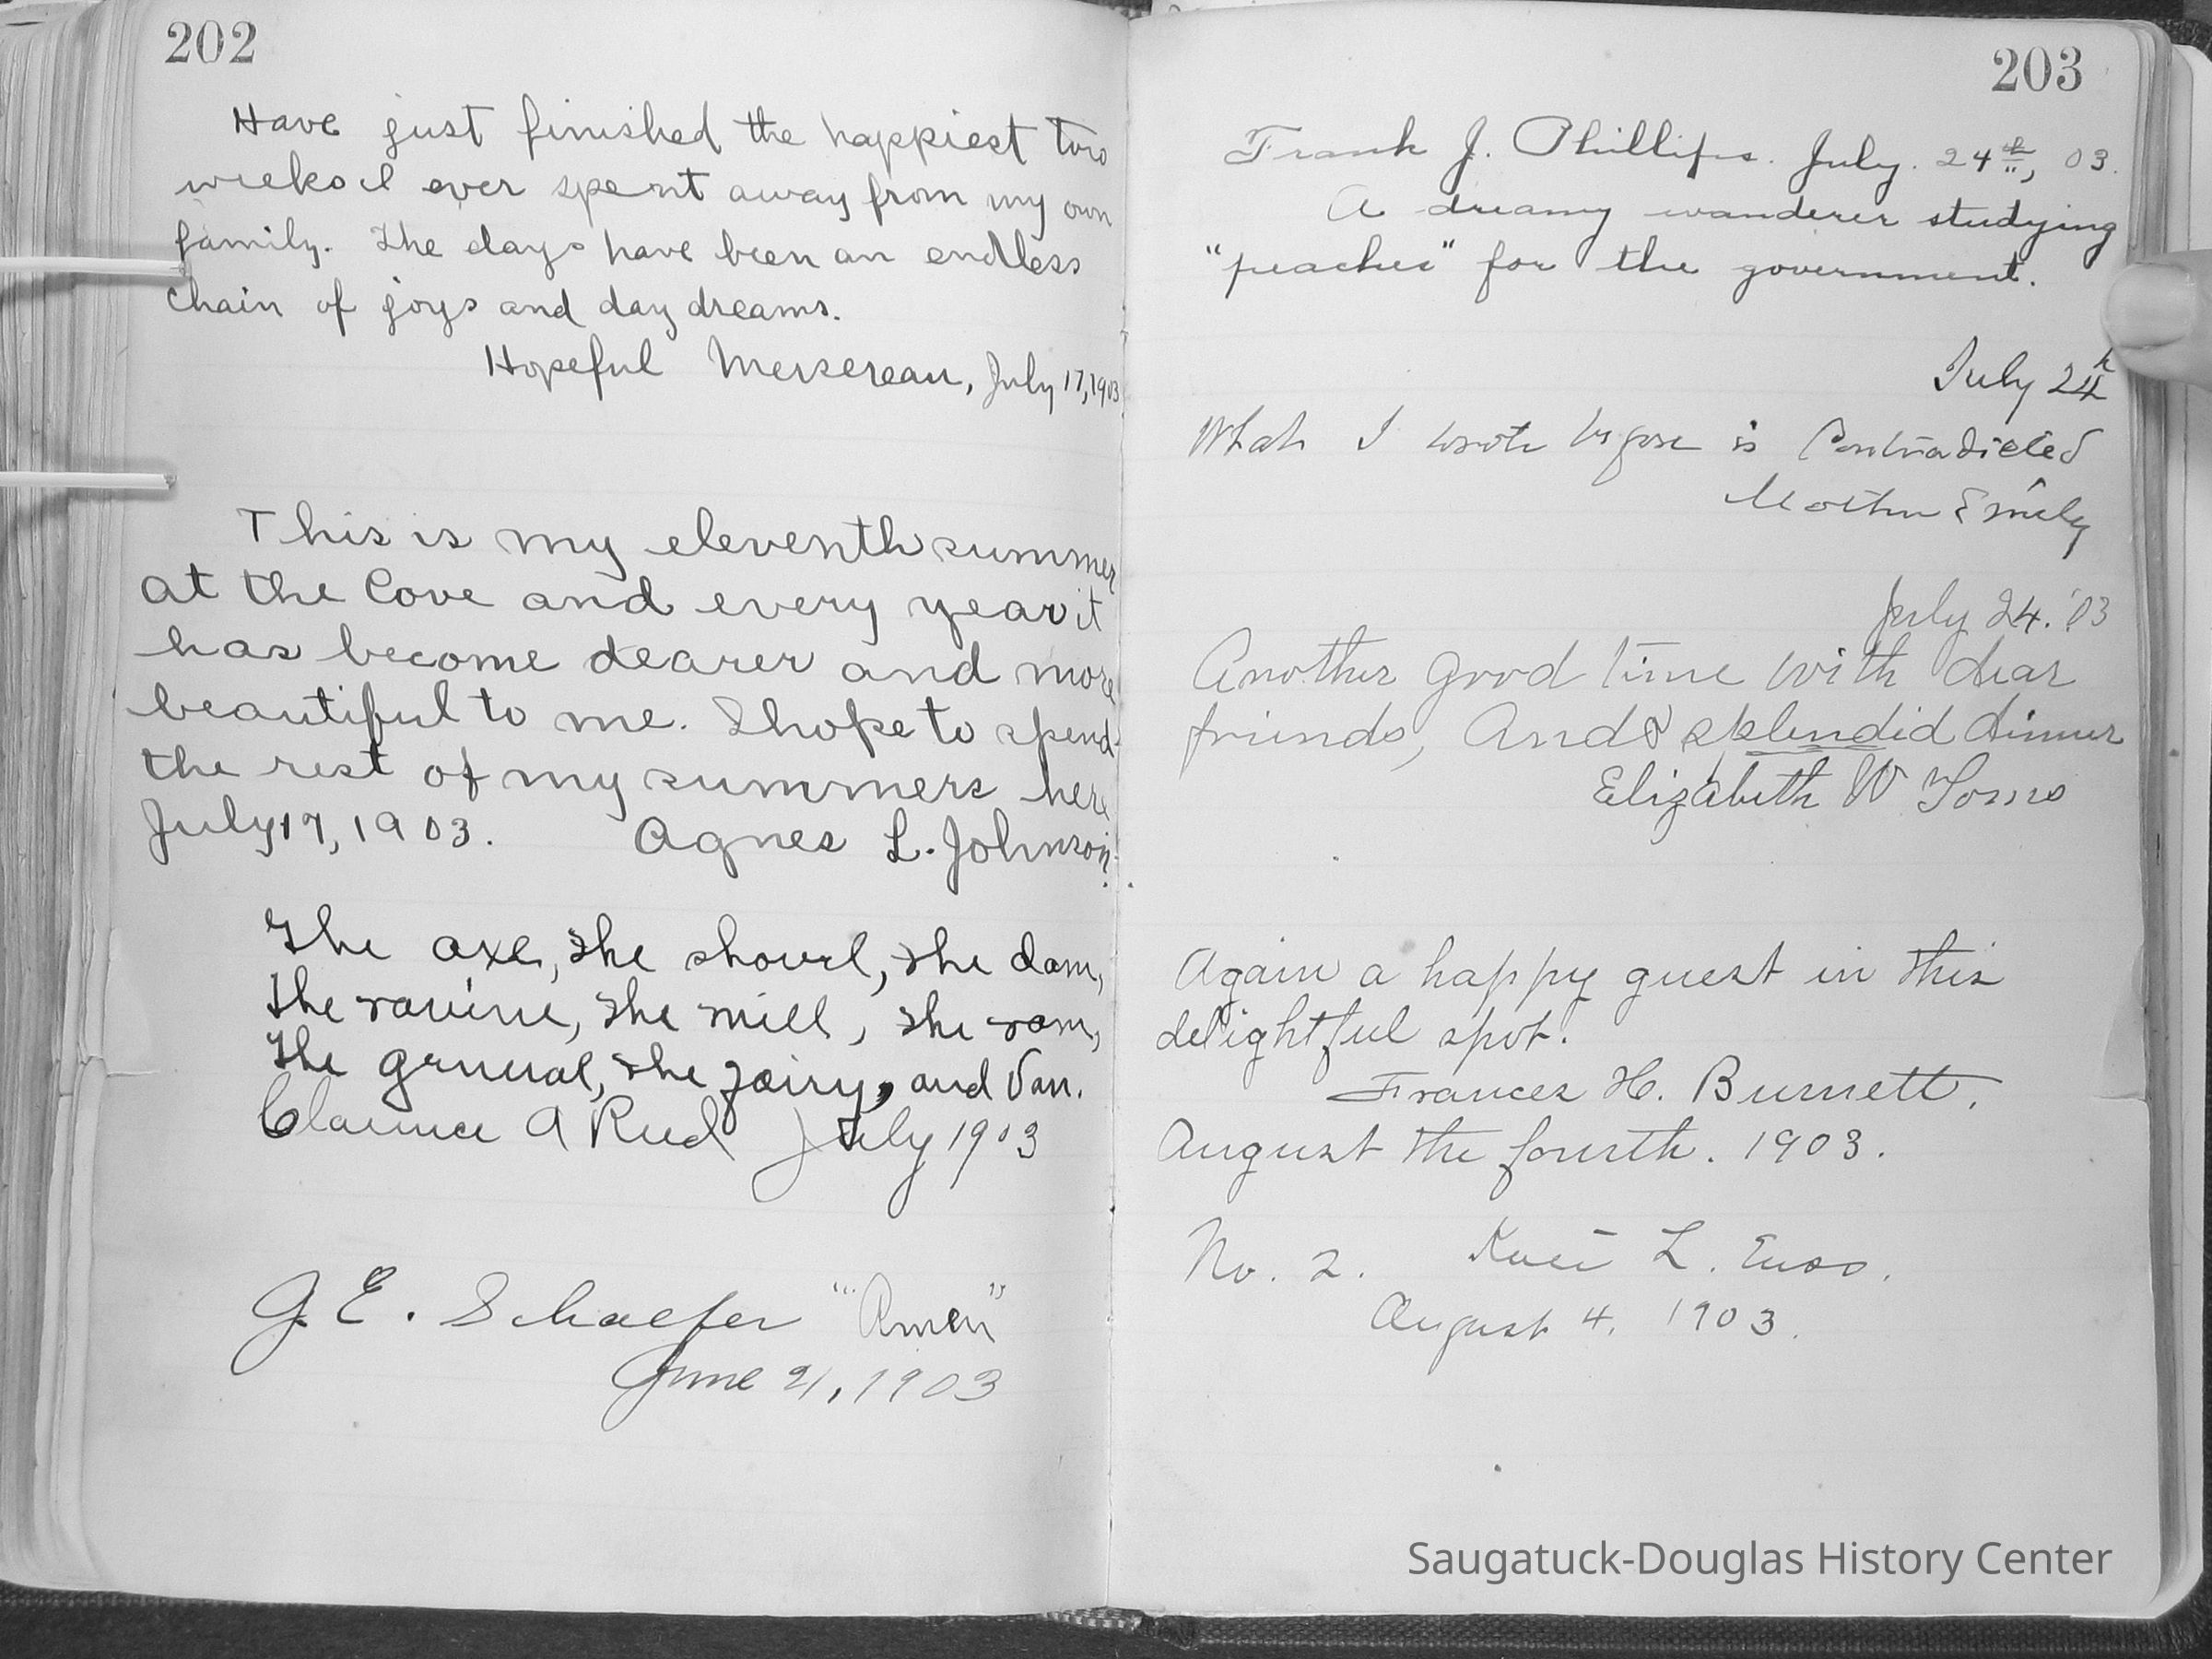 202
Have just finished the happiest two
weeks I ever spent away from my own
family. The days have been an endless
chain of joys and day dreams.
Hopeful Mersereau, July 17, 1903
This is my eleventh summer
at the Cove and every year it
has become dearer and more
beautiful to me. I hope to spend
the rest of my summers here
July 17, 1903. Agnes L. Johnson.
The axe, the shovel, the dam,
the ravine, the mill, the ram,
the the and Van.
Clarence A Reed July 1903
G. E. Schaefer "Amen"
June 21, 1903
203
Frank J. Phillips. July. 24th, 03.
A dreamy wanderer studying
"peaches" for the government.
July 24th
What I wrote before is Contradicted
Emily
July 24. '03
Another good time with dear
friends, And a splendid dinner
Elizabeth W
Again a happy guest in this
delightful spot.
Frances H. Burnett.
August the fourth. 1903.
No. 2. L.
August 4, 1903.
Saugatuck-Douglas History Center